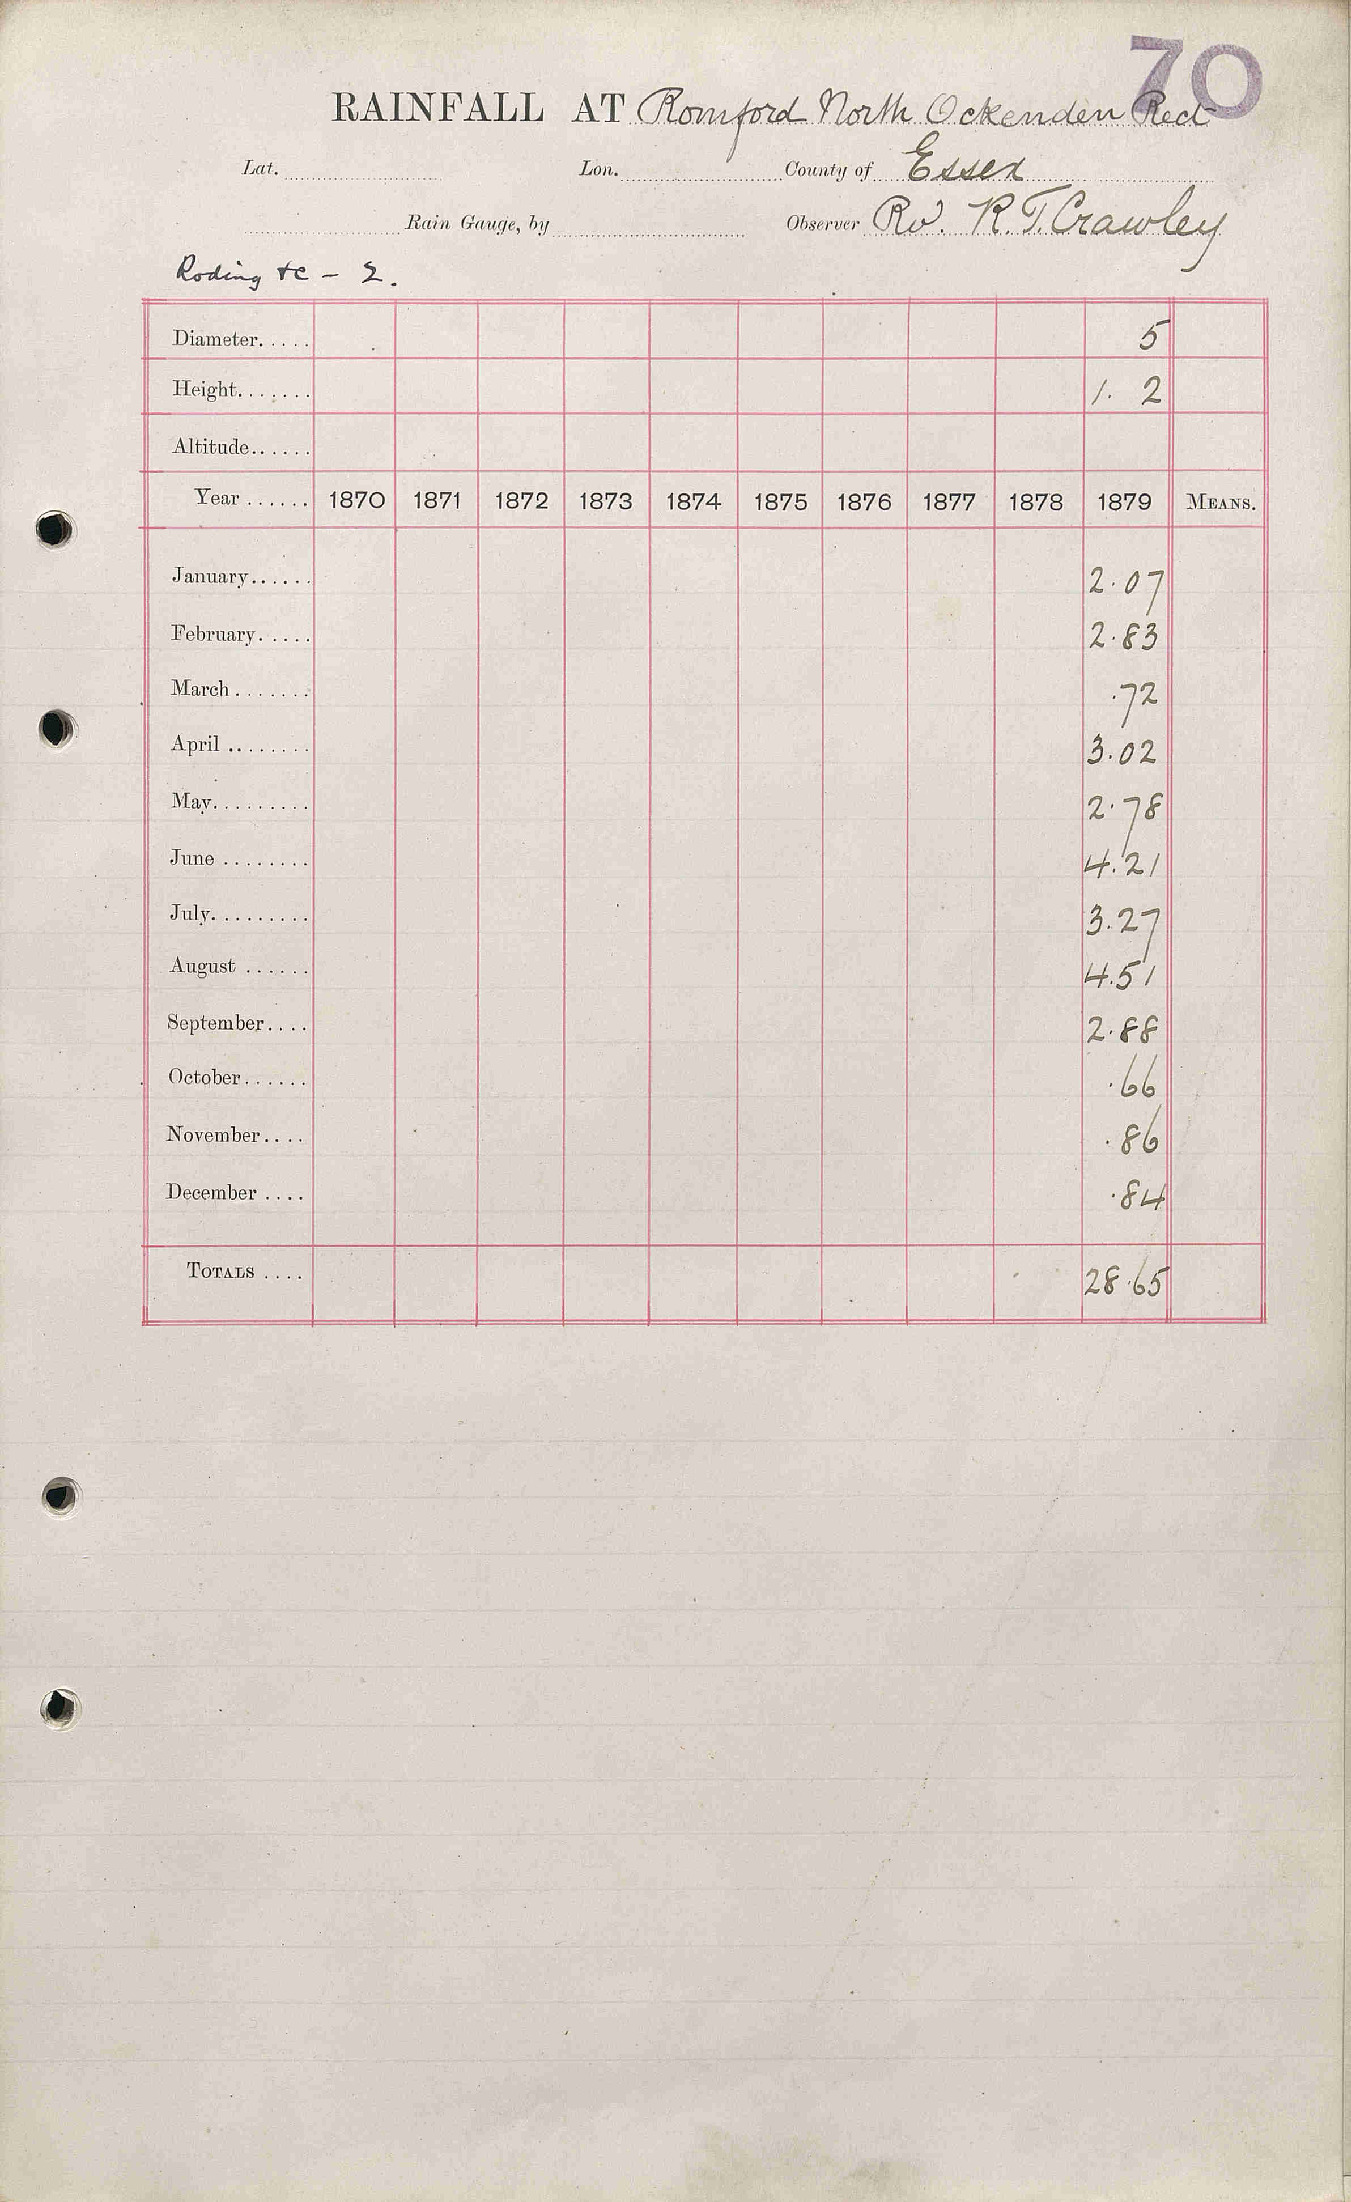 70
RAINFALL AT Romford North Ockenden Rect
Lat. Lon. County of Essex
Rain Gauge, by Observer Rev. R. T. Crawley
Roding &c - 2.
Diameter..... 5
Height....... 1. 2
Altitude......
Year ...... 1870 1871 1872 1873 1874 1875 1876 1877 1878 1879 MEANS.
January...... 2.07
February..... 2.83
March ....... .72
April ........ 3.02
May......... 2.78
June ........ 4.21
July......... 3.27
August ...... 4.51
September.... 2.88
October...... .66
November.... .86
December .... .84
TOTALS .... 28.65